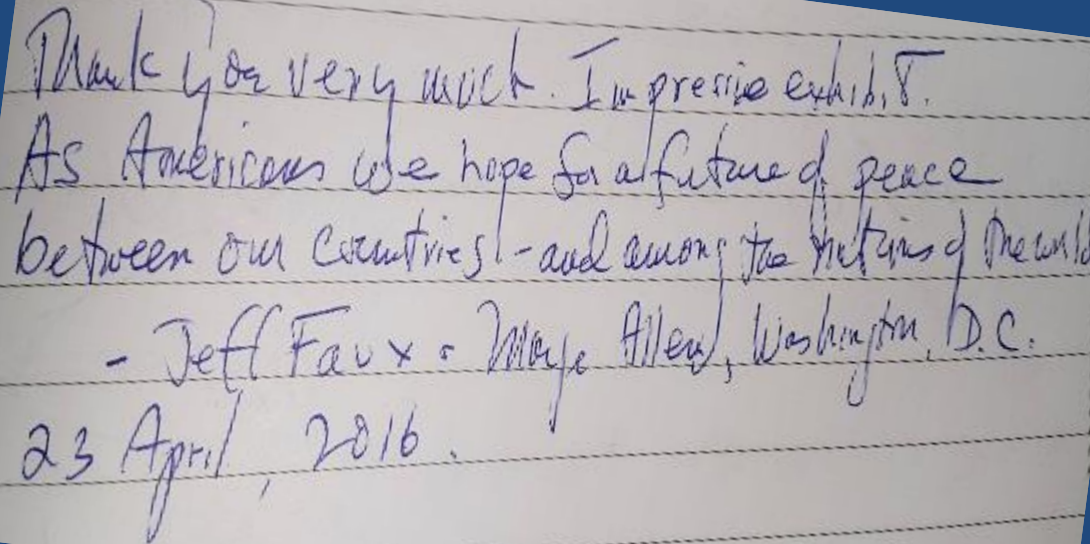 Thank you very much. Impressive exhibit.
As Americans we hope for a future of peace
between our countries - and among the nations of the world
- Jeff Faux & Marge Allen, Washington, D.C.
23 April, 2016.